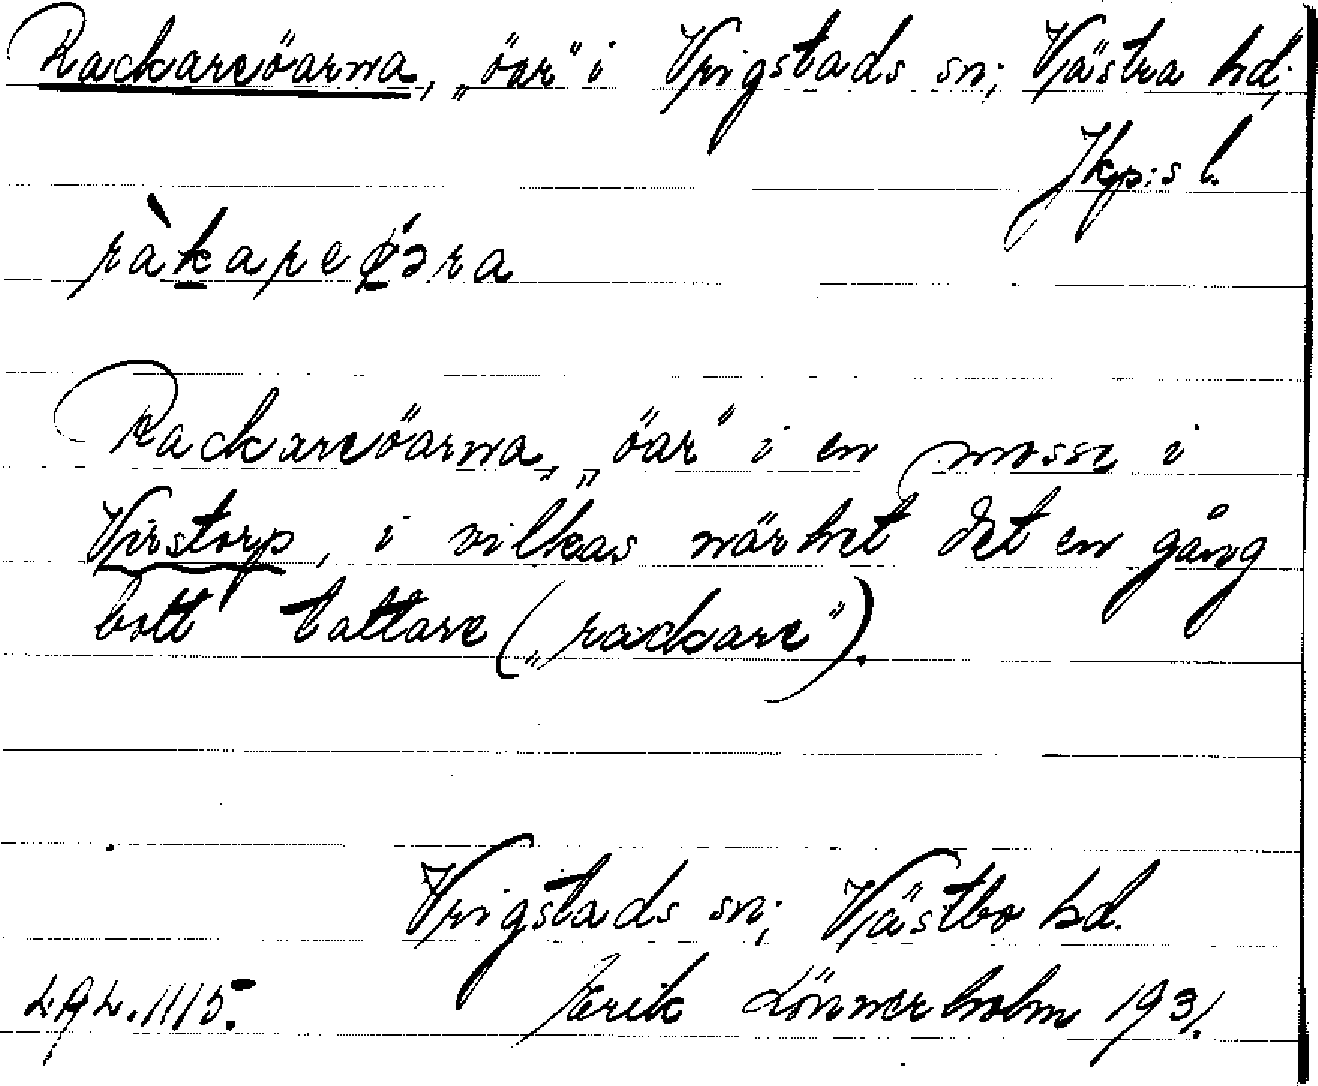 Rackareöarna, „öar“ i Vrigstads sn; Västra hd,
Jkp:s l.
ràkapeǿəra
Rackareöarna, „öar“ i en mosse i
Virstorp, i vilkas närhet det en gång
bott tattare („rackare“).
Vrigstads sn; Västbo hd.
LAL.1115. Erik Lönnerholm 1931.